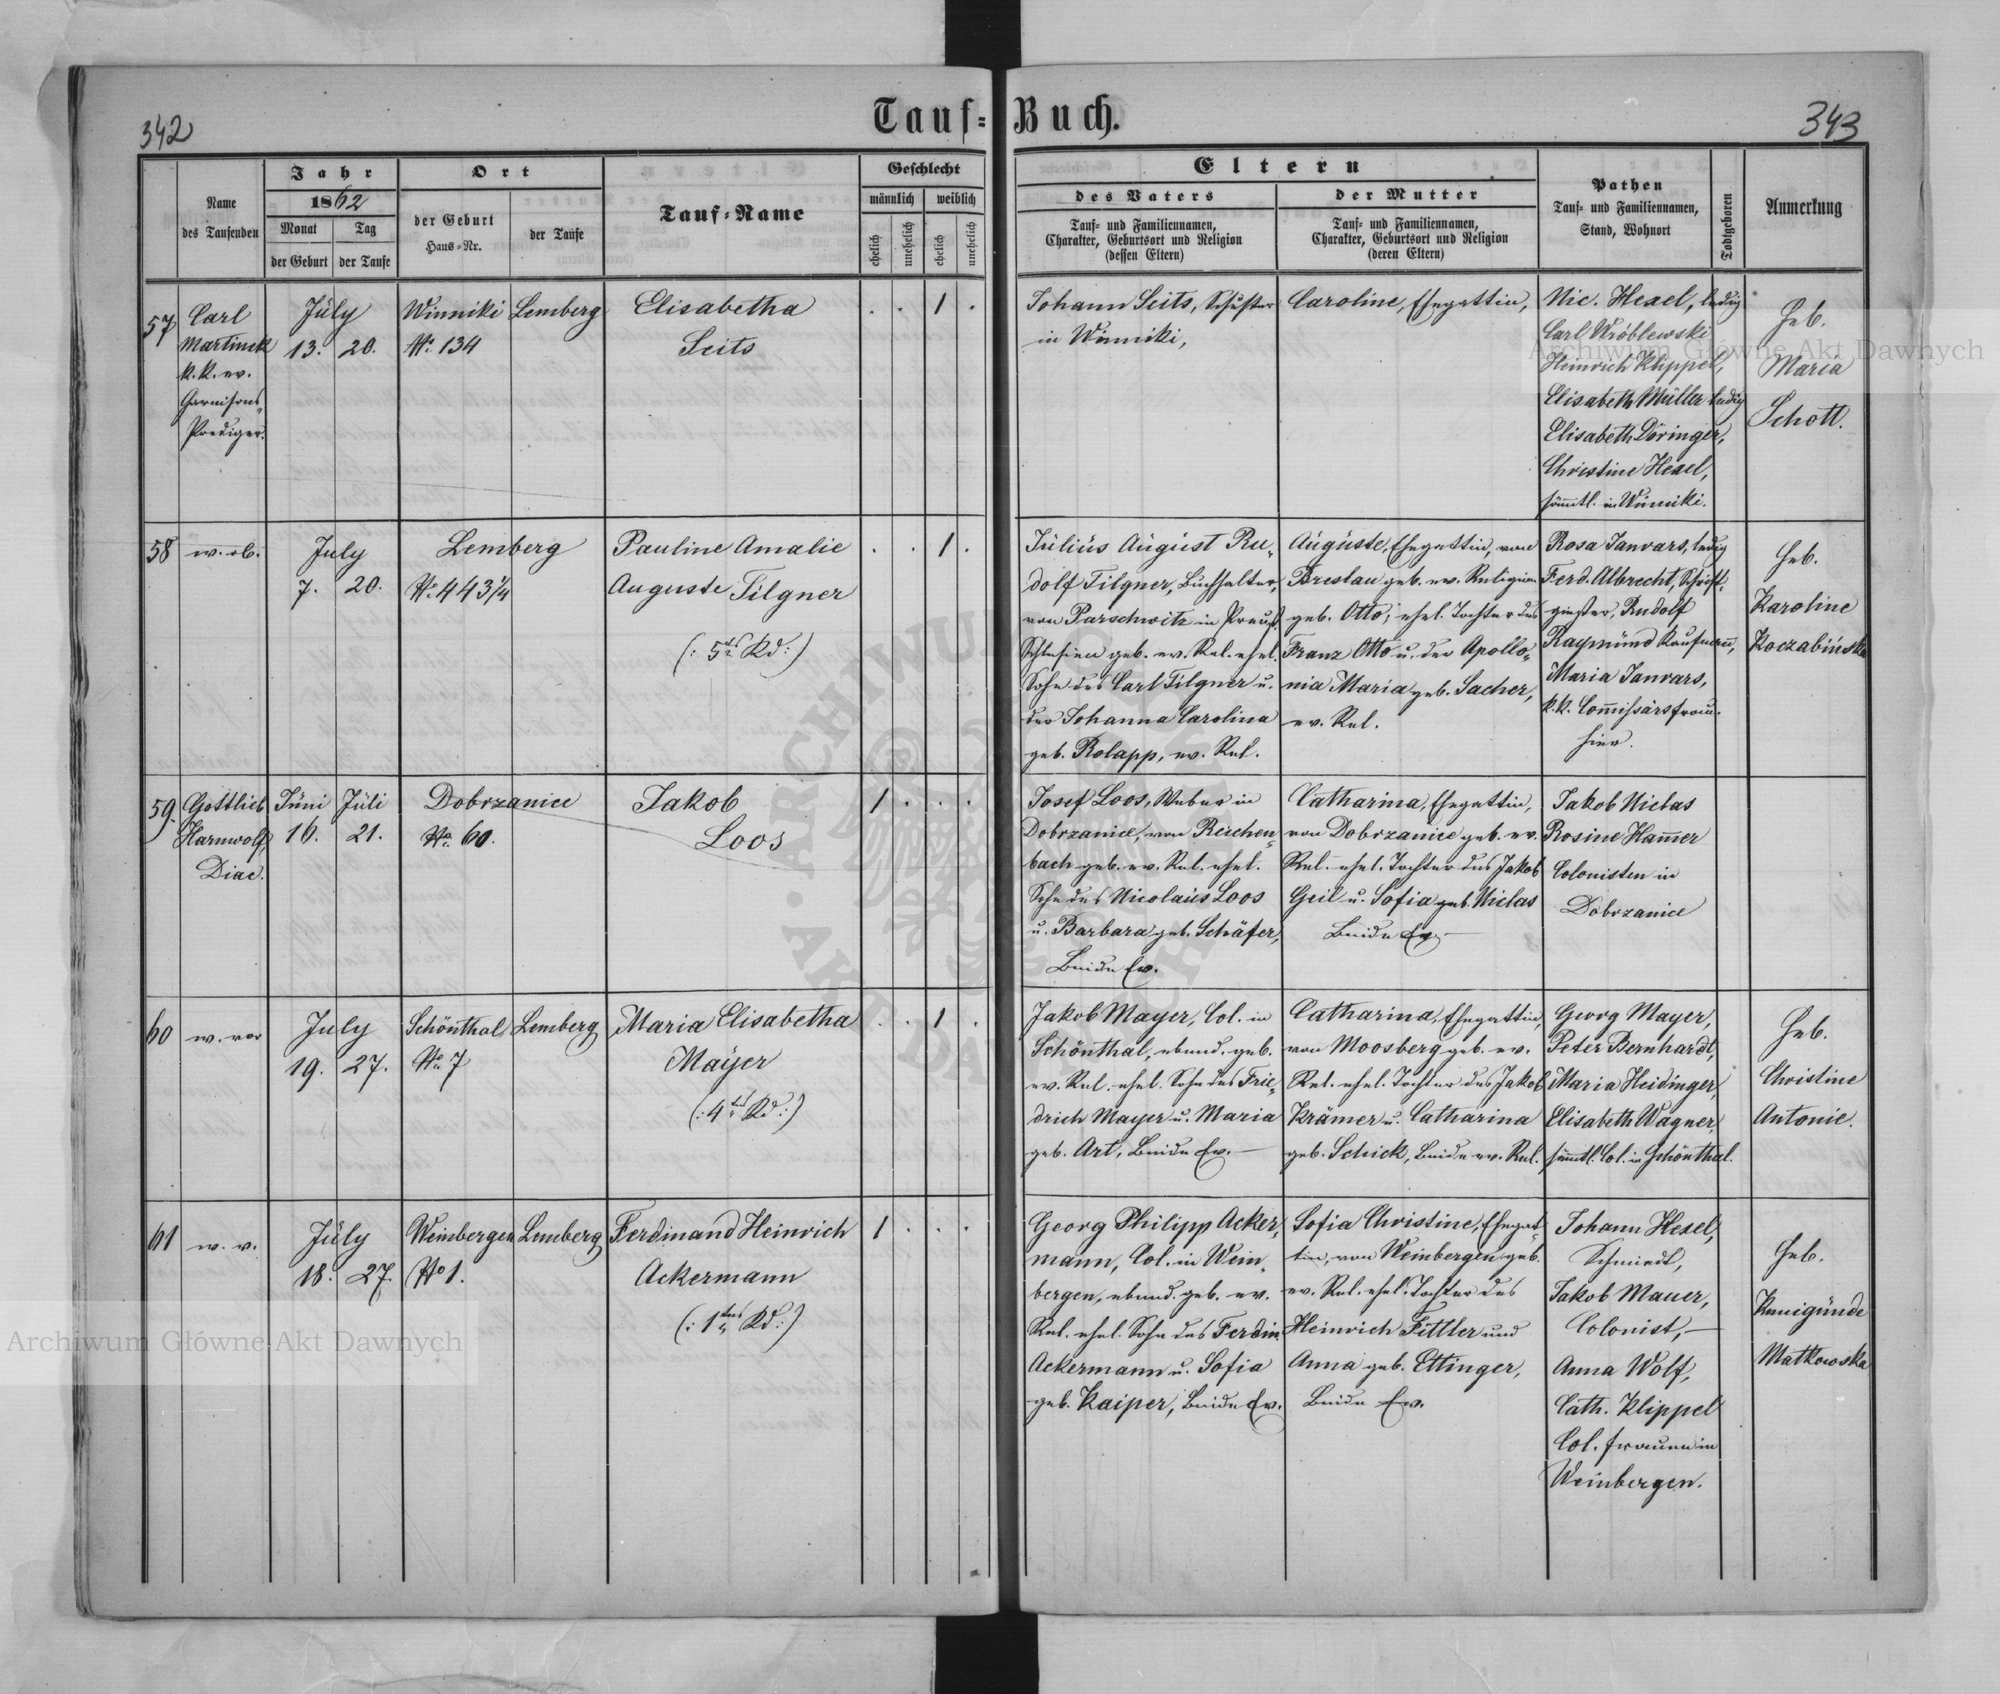 342
Tauf-Buch.
343
Name
des Taufenden
Jahr
1862
Monat
der Geburt
Tag
der Taufe
Ort
der Geburt
Haus-Nr.
der Taufe
Tauf-Name
Geschlecht
männlich
weiblich
ehelich
unehelich
ehelich
unehelich
Eltern
des Vaters
Tauf- und Familiennamen,
Charakter, Geburtsort und Religion
(dessen Eltern)
der Mutter
Tauf- und Familiennamen,
Charakter, Geburtsort und Religion
(deren Eltern)
Pathen
Tauf- und Familiennamen,
Stand, Wohnort
Todtgeboren
Anmerkung
57
Carl
Martinek
k.k. ev.
Garnisons-
Prediger.
July
13. 20.
Winniki
No. 134
Lemberg
Elisabetha
Seits
. . 1 .
Johann Seits, Schuster
in Winniki,
Caroline, Ehegattin,
Nic. Hexel, ledig
Carl Wróblewski
Heinrich Klippel,
Elisabeth Müller ledig
Elisabeth Döringer,
Christine Hexel,
sämtl. in Winniki.
Heb.
Maria
Schott.
58
w. ob.
July
7. 20.
Lemberg
No. 443 1/4
Pauline Amalie
Auguste Tilgner
(: 5tes Kd :)
. . 1 .
Julius August Ru-
dolf Tilgner, Buchhalter,
von Parschwitz in Preuß.
Schlesien geb. ev. Rel. ehel.
Sohn des Carl Tilgner u.
der Johanna Carolina
geb. Rolapp, ev. Rel.
Auguste, Ehegattin, von
Breslau geb. ev. Religion
geb. Otto, ehel. Tochter des
Franz Otto u. der Apollo-
nia Maria geb. Sacher,
ev. Rel.
Rosa Janvars, ledig
Ferd. Albrecht, Schrift-
gießer, Rudolf
Raymund Kaufmann,
Maria Janvars,
k.k. Commissärsfrau.
hier.
Heb.
Karoline
Koczabińska
59.
Gottlieb
Harnwolf,
Diac.
Juni Juli
16. 21.
Dobrzanice
No. 60.
Jakob
Loos
1 . . .
Josef Loos, Weber in
Dobrzanice, von Reichen-
bach geb. ev. Rel. ehel.
Sohn des Nicolaus Loos
u. Barbara geb. Schäfer,
Beide Ev.
Catharina, Ehegattin,
von Dobrzanice geb. ev.
Rel. ehel. Tochter des Jakob
Geil u. Sofia geb. Niclas
Beide Ev.
Jakob Niclas
Rosine Hammer
Colonisten in
Dobrzanice
60
w. vor
July
19. 27.
Schönthal
No. 7
Lemberg
Maria Elisabetha
Mayer
(: 4tes Kd :)
. . 1 .
Jakob Mayer, Col. in
Schönthal, ebend. geb.
ev. Rel. ehel. Sohn des Frie-
drich Mayer u. Maria
geb. Art, Beide Ev.
Catharina, Ehegattin,
von Moosberg geb. ev.
Rel. ehel. Tochter des Jakob
Krämer u. Catharina
geb. Schick, Beide ev. Rel.
Georg Mayer,
Peter Bernhardt,
Maria Heidinger,
Elisabeth Wagner,
sämtl. Col. in Schönthal.
Heb.
Christine
Antonie.
61
w. v.
July
18. 27.
Weinbergen
No 1.
Lemberg
Ferdinand Heinrich
Ackermann
(: 1tes Kd :)
1 . . .
Georg Philipp Acker-
mann, Col. in Wein-
bergen, ebend. geb. ev.
Rel. ehel. Sohn des Ferdin.
Ackermann u. Sofia
geb. Kaiper, Beide Ev.
Sofia Christine, Ehegat-
tin, von Weinbergen geb.
ev. Rel. ehel. Tochter des
Heinrich Fittler und
Anna geb. Ettinger,
Beide Ev.
Johann Hexel,
Schmiedt,
Jakob Mauer,
Colonist,
Anna Wolf,
Cath. Klippel
Col. frauen in
Weinbergen.
Heb.
Kunigunde
Matkowska
Archiwum Główne Akt Dawnych
Archiwum Główne Akt Dawnych